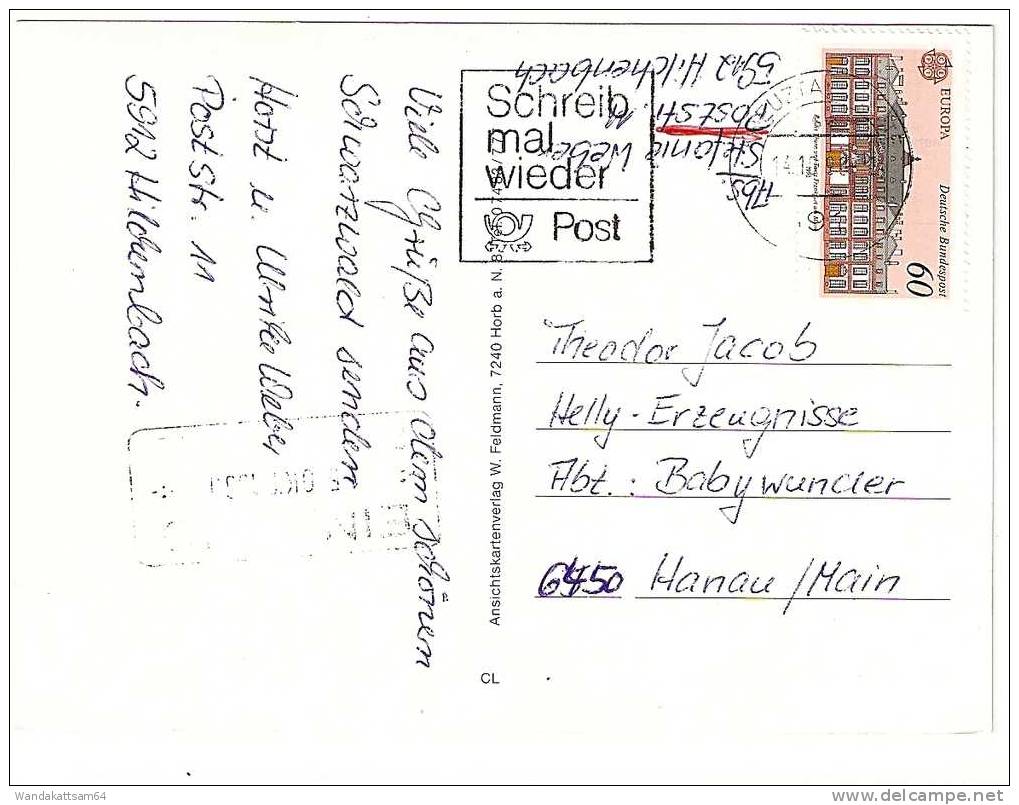 Viele Grüße aus dem schönen
Schwarzwald senden
Horst u. Weber
Poststr. 11
5912 Hilchenbach.
Schreib
mal
wieder
Post
Abs:
Stefanie Weber
Poststr. 11
5912 Hilchenbach
EUROPA
Deutsche Bundespost
60
Theodor Jacob
Helly-Erzeugnisse
Abt.: Babywunder
6450 Hanau/Main
Ansichtskartenverlag W. Feldmann, 7240 Horb a. N.
CL
Wandakattsam64
delcampe.net